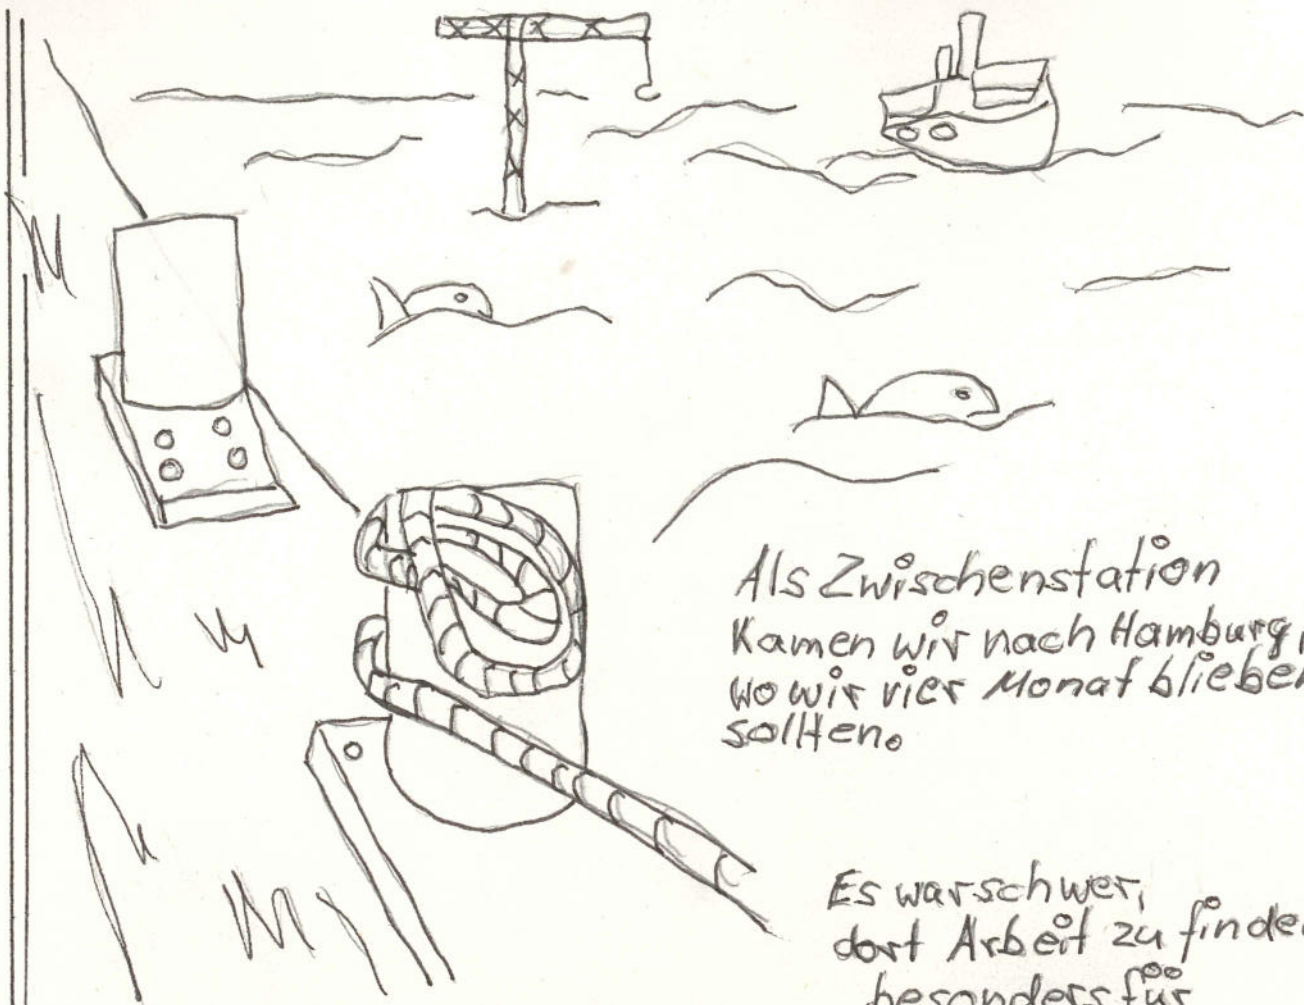 Als Zwischenstation
Kamen wir nach Hamburg,
wo wir vier Monat blieben
sollten.
Es war schwer,
dort Arbeit zu finden
besonders für